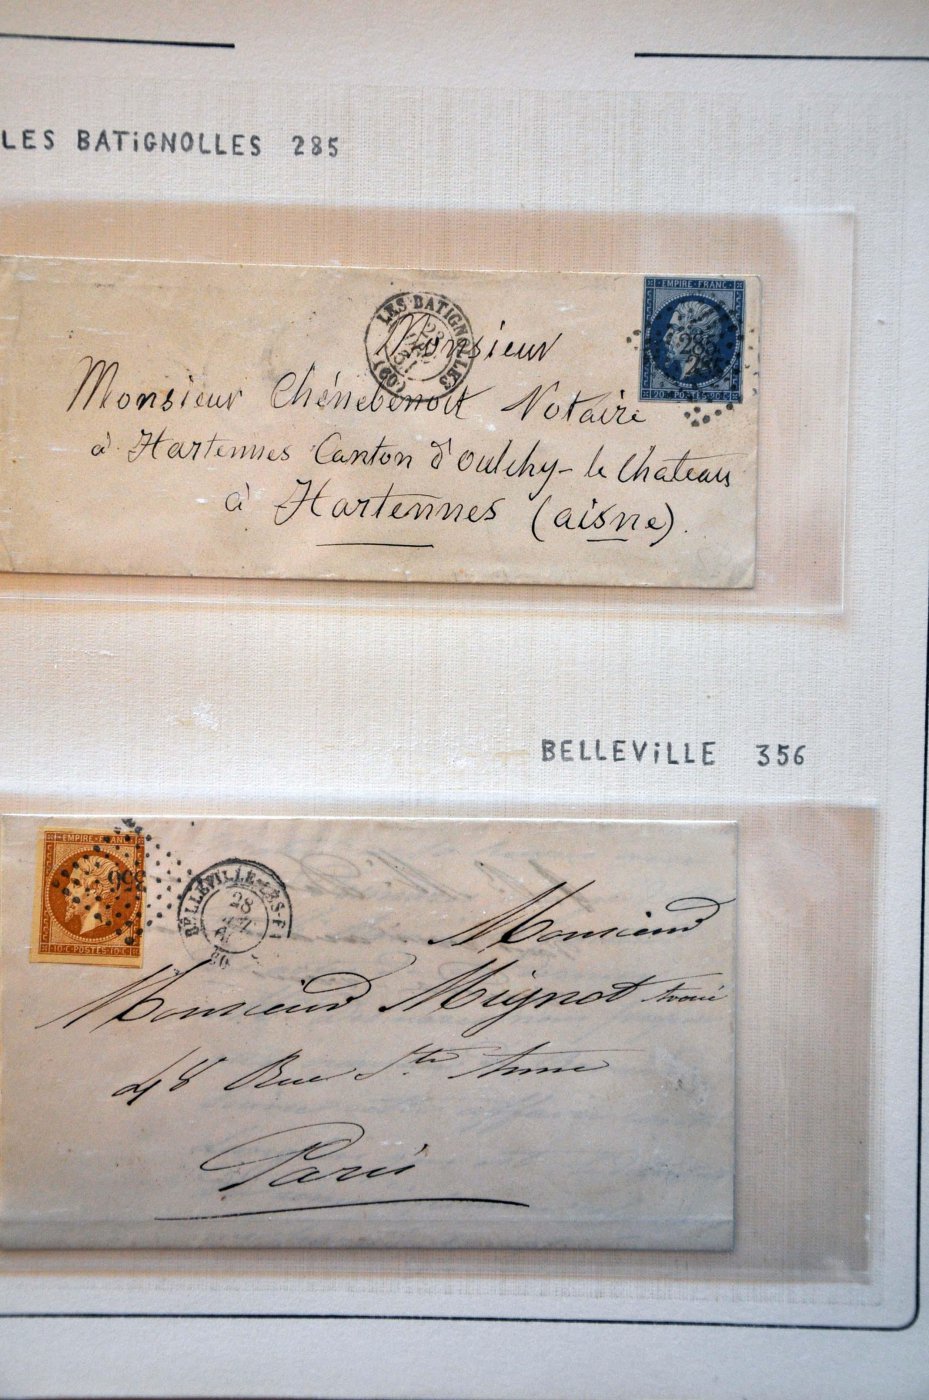 LES BATiGNOLLES 285
LES BATIGNOLLES
23
(60)
EMPIRE FRANC
285
285
20 C POSTES 20 C
Monsieur
Monsieur Chénebenoit Notaire
à Hartennes Canton d'Oulchy-le Chateau
à Hartennes (aisne).
BELLEViLLE 356
EMPIRE FRANC
356
10 C POSTES 10 C
BELLEVILLE-LES-P
28
60
Monsieur
Monsieur Mignot Avoué
48 Rue Ste Anne
Paris